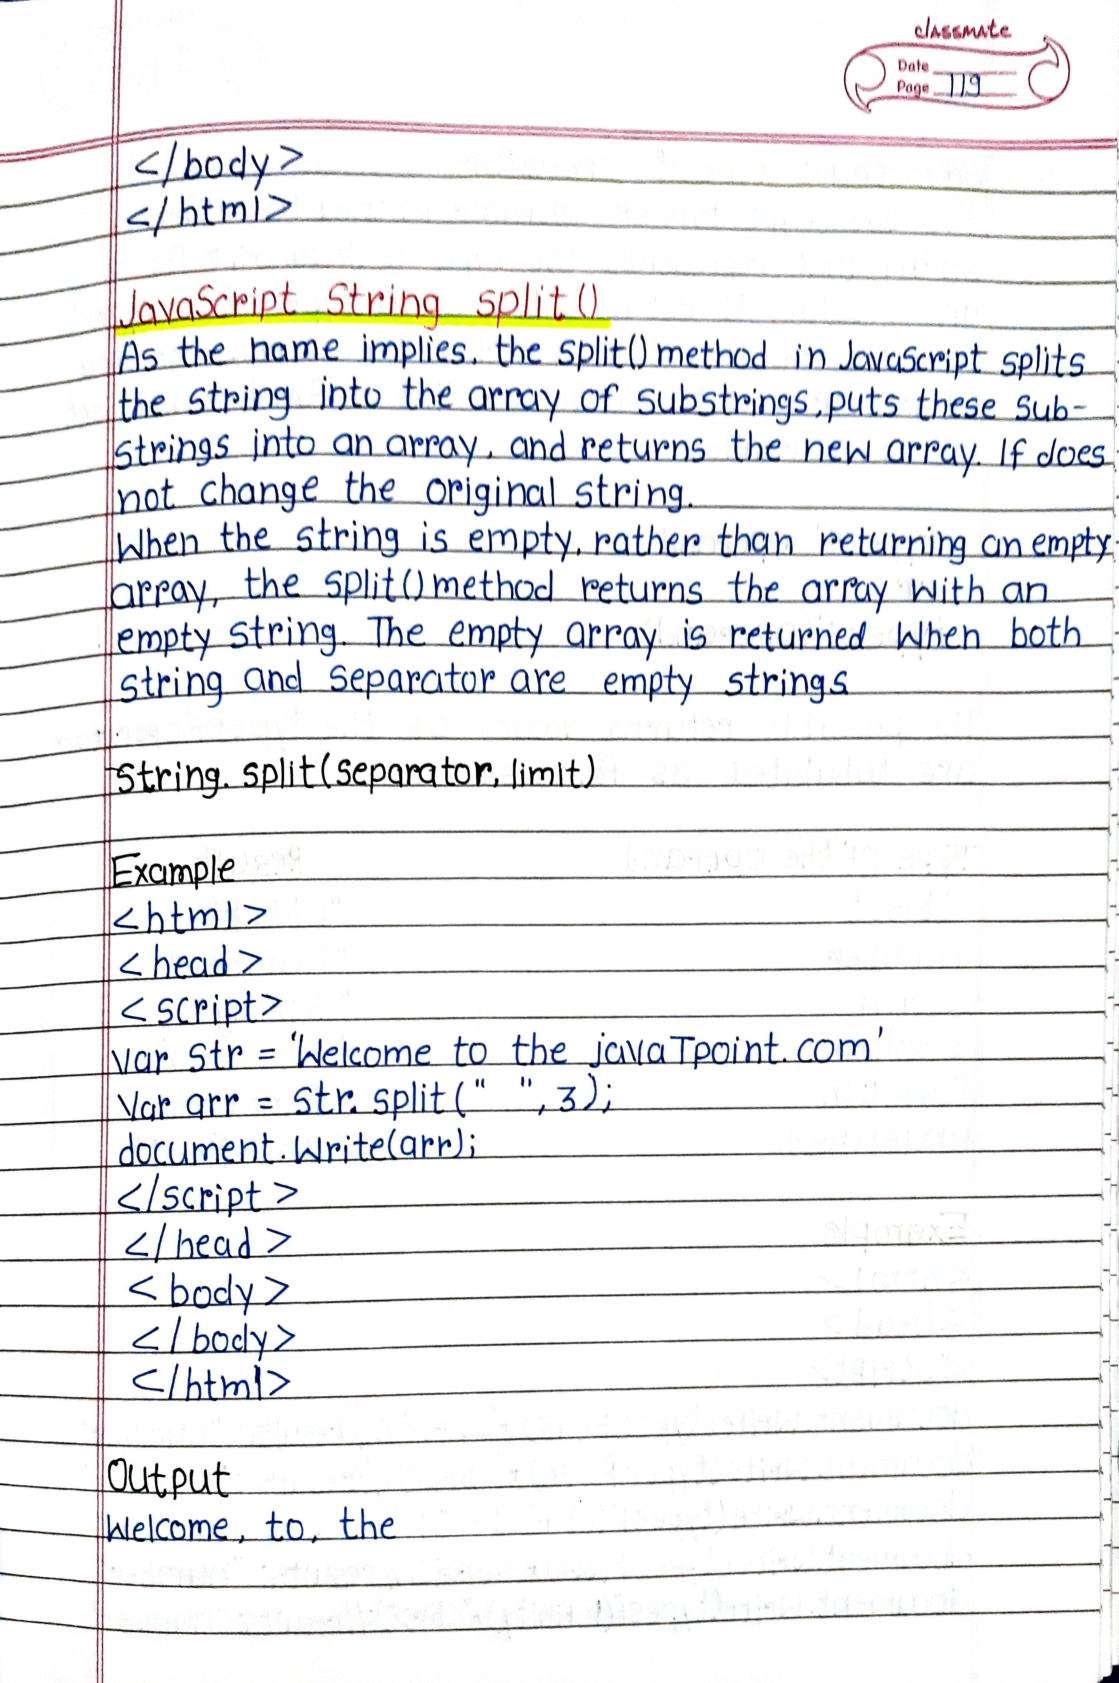 classmate
Date
Page 119
</body>
</html>
JavaScript String split()
As the name implies. the split() method in JavaScript splits
the string into the array of substrings, puts these sub-
strings into an array, and returns the new array. If does
not change the original string.
When the string is empty, rather than returning an empty
array, the split() method returns the array with an
empty string. The empty array is returned When both
string and separator are empty strings
String. split(separator, limit)
Example
<html>
<head>
<script>
var str = 'Welcome to the javaTpoint.com'
Var arr = str. split(" ", 3);
document.Write(arr);
</script>
</head>
<body>
</body>
</html>
Output
Welcome, to, the